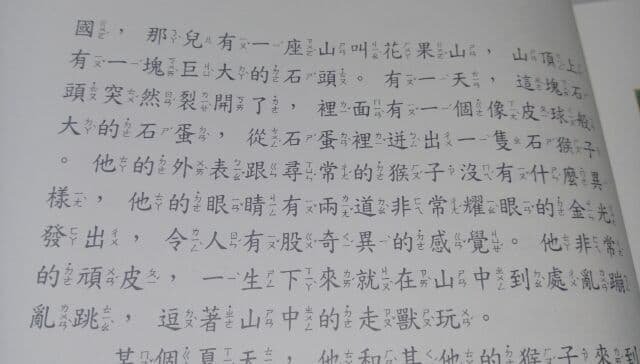 國，那兒有一座山叫花果山，山頂上
有一塊巨大的石頭。有一天，這塊石
頭突然裂開了，裡面有一個像皮球般
大的石蛋，從石蛋裡迸出一隻石猴子
。他的外表跟尋常的猴子沒有什麼異
樣，他的眼睛有兩道非常耀眼的金光
發出，令人有股奇異的感覺。他非常
的頑皮，一生下來就在山中到處亂蹦
亂跳，逗著山中的走獸玩。
某個夏天，他和其他的猴子來到